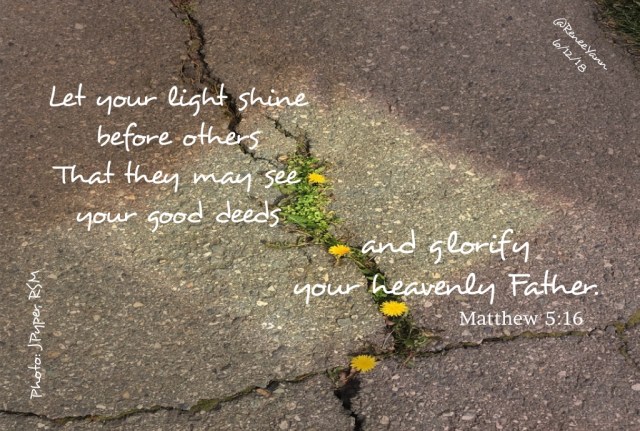 @ReneeYann
6/12/18
Let your light shine
before others
That they may see
your good deeds
and glorify
your heavenly Father.
Matthew 5:16
Photo: JPyper, RSM